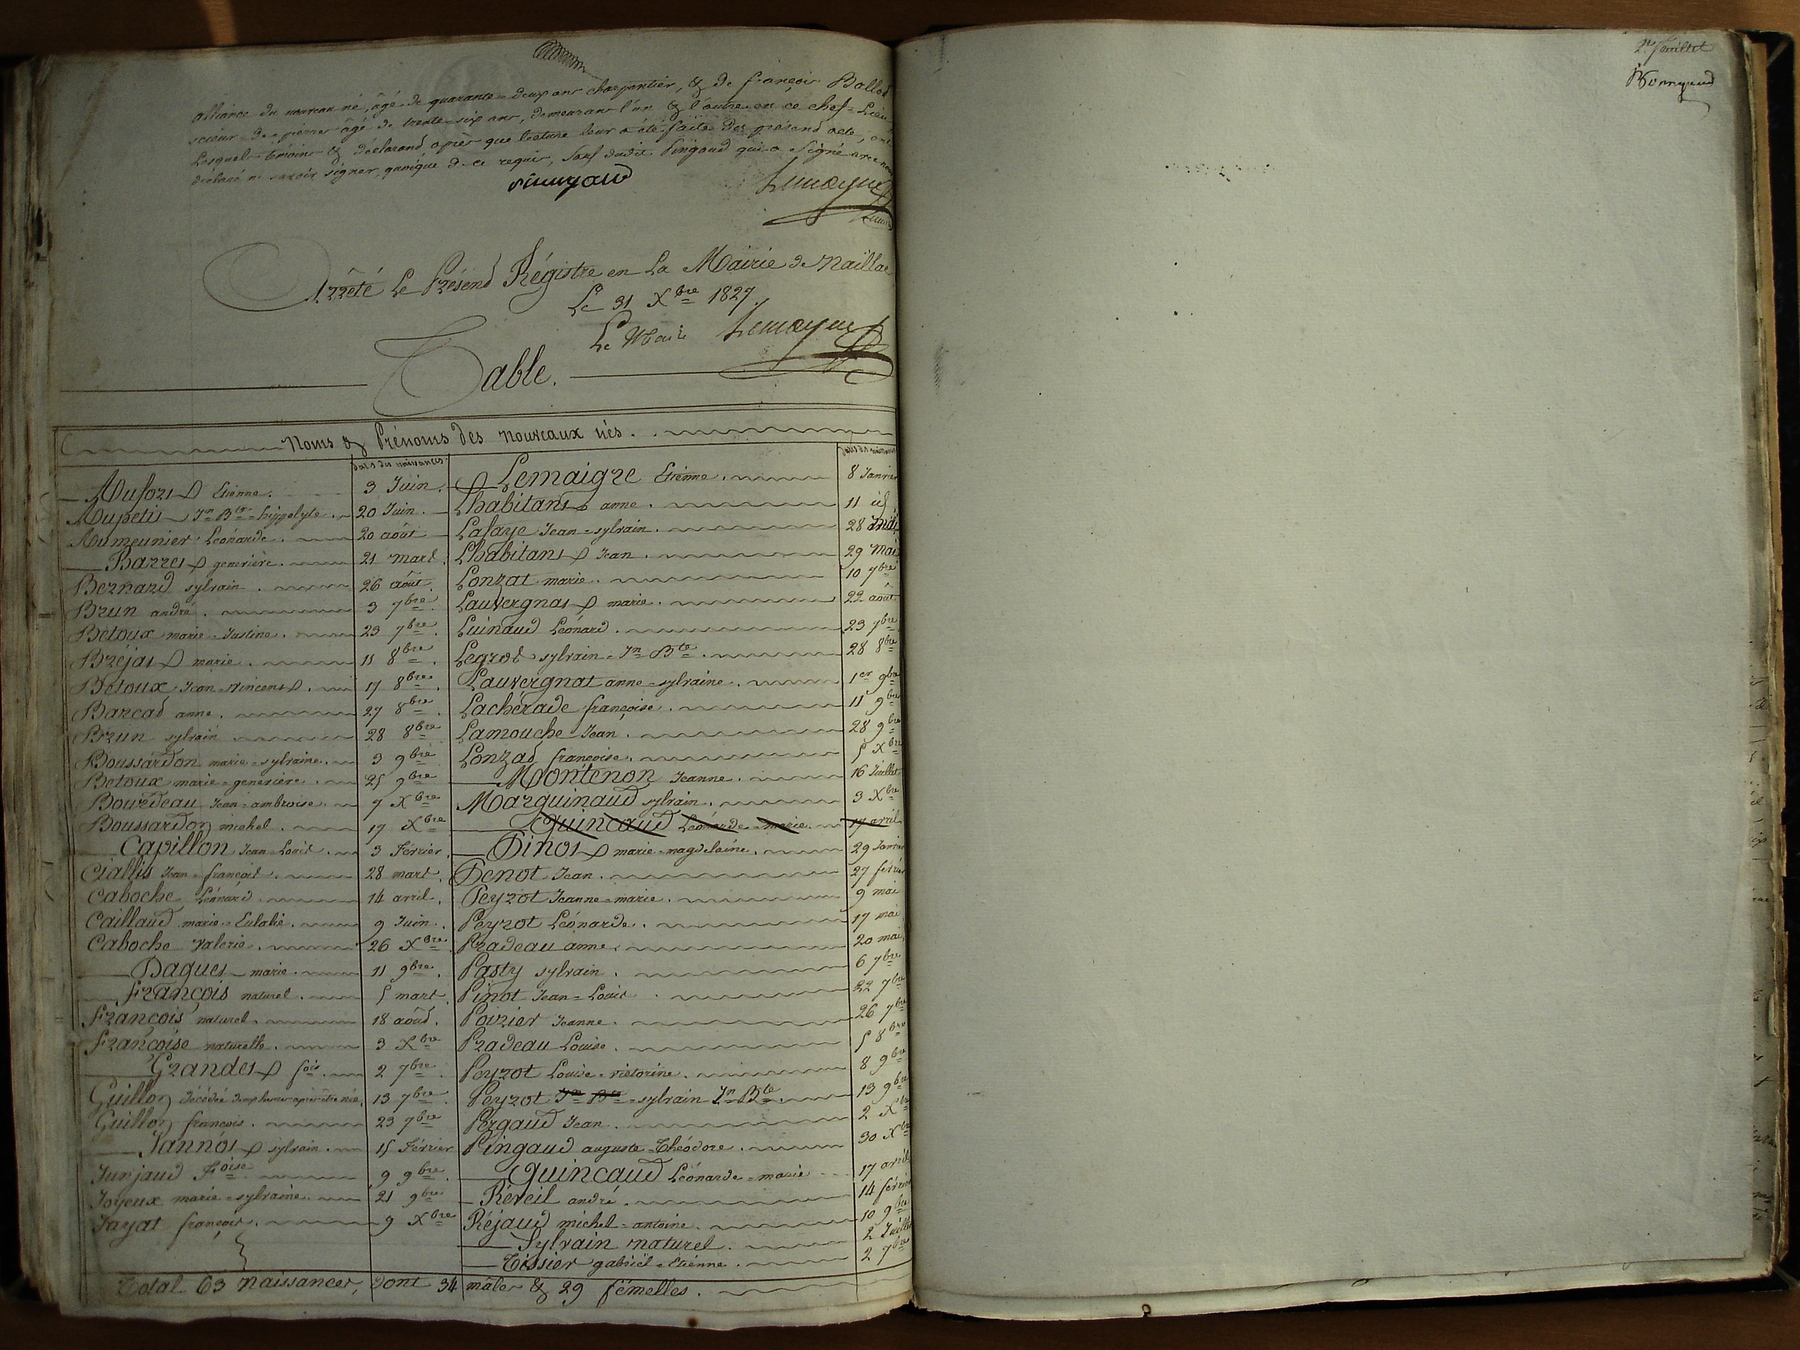 alliance du nouveau né, âgé de quarante-deux ans charpentier, & de françois Ballet
scieur de pierres âgé de trente-six ans, demeurant l'un & l'autre en ce chef-Lieu
Lesquels témoins & déclarand après que lecture leur a été faite du présend acte, ont
déclaré ne savoir signer, quoique de ce requis, sauf dudit Pingaud qui a signé avec nous
Pingaud
Lemoyne
Arrêté Le Présend Régistre en La Mairie de Naillac
Le 31 Xbre 1827
Le Maire Lemoyne
Table.
Noms & Prénoms des nouveaux nés.
dates des naissances
Aufort Etienne. 3 Juin.
Aupetit Jn Bte hippolyte. 20 Juin.
Aumeunier Léonarde. 20 août
Barret genevière. 21 mart.
Bernard sylvain. 26 août.
Brun andré. 3 7bre.
Betoux marie-Justine. 23 7bre.
Bréjat marie. 11 8bre.
Betoux Jean-vincent. 17 8bre.
Barcat anne. 27 8bre.
Brun sylvain 28 8bre
Boussardon marie-sylvaine. 3 9bre
Betoux marie-genevière. 25 9bre
Bourdeau Jean-ambroise. 7 Xbre
Boussardon michel. 17 Xbre
Capillon Jean-Louis. 3 Février.
Ciallis Jean-françois. 28 mart.
Caboche Léonard. 14 avril.
Caillaud marie-Eulalie. 9 Juin.
Caboche Valerie. 26 Xbre
Daques marie. 11 9bre.
François naturel. 5 mart.
François naturel. 18 aoûd.
Françoise naturelle. 3 Xbre
Grandet fois. 2 7bre.
Guillon décédée 13 7bre.
Guillon françois. 23 7bre
Jannot sylvain. 15 Février
Junjaud Foise 9 9bre.
Joyeux marie-sylvaine. 21 9bre
Jayat françois. 9 Xbre
Lemaigre Etienne. 8 Janvier
Lhabitant anne. 11 id
Lafaye Jean-sylvain. 28
Lhabitant Jean. 29 Mai
Lonzat marie. 10 7bre
Lauvergnat marie. 22 août
Luinaud Léonard. 23 7bre
Legrot sylvain-Jn Bte. 28 8bre
Lauvergnat anne-sylvaine. 1er 9bre
Lachérade françoise. 11 9bre
Lamouche Jean. 28 9bre
Lonzad françoise. 5 Xbre
Montenon Jeanne. 16 Juillet
Marguinaud sylvain. 3 Xbre
Quincaud Léonarde-marie. 17 avril
Pinot marie-magdelaine. 29 Janvier
Penot Jean. 27 février
Peyrot Jeanne-marie. 9 mai
Peyrot Léonarde. 17 mai
Pradeau anne. 20 mai
Pasty sylvain. 6 7bre
Pinot Jean-Louis. 22 7bre
Poirier Jeanne. 26 7bre
Pradeau Louise. 5 8bre
Peyrot Louise-victorine. 8 9bre
Peyrot Jn Bte-sylvain Jn Bte. 13 9bre
Pergaud Jean. 2 Xbre
Pingaud auguste-Théodore. 30 Xbre
Quincaud Léonarde-marie 17 avril
Réveil andré. 14 février
Réjaud michel-antoine. 10 9bre
Sylvain naturel. 2 Juillet
Tissier gabriel-Etienne. 2 7bre
Total 63 naissances, dont 34 mâles & 29 fémelles.
2e feuillet